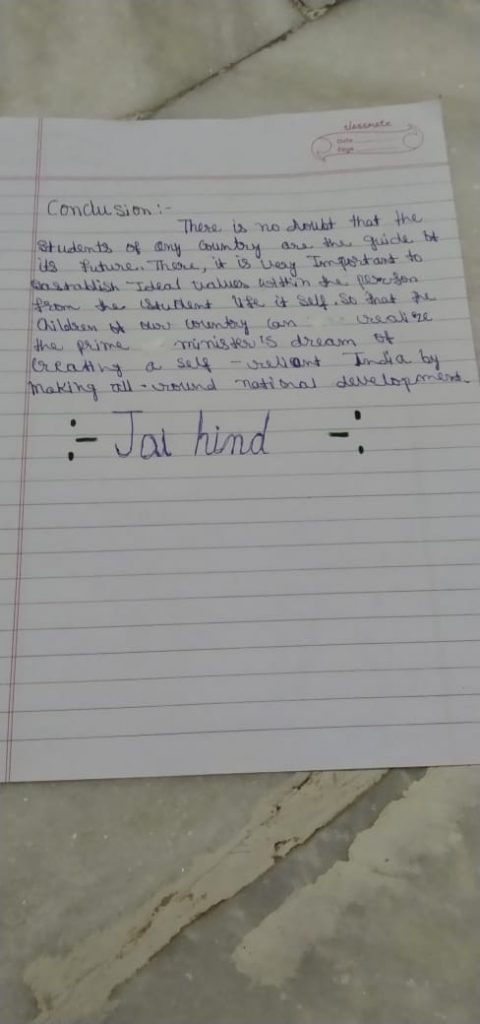 classmate
Date
Page
Conclusion :-
There is no doubt that the
Students of any Country are the guide of
its future. There, it is very Important to
eastablish Ideal values within the person
from the student life it self. so that the
Children of our country can realize
the prime minister's dream of
Creating a self - reliant India by
making all - round national development.
:- Jai hind -: